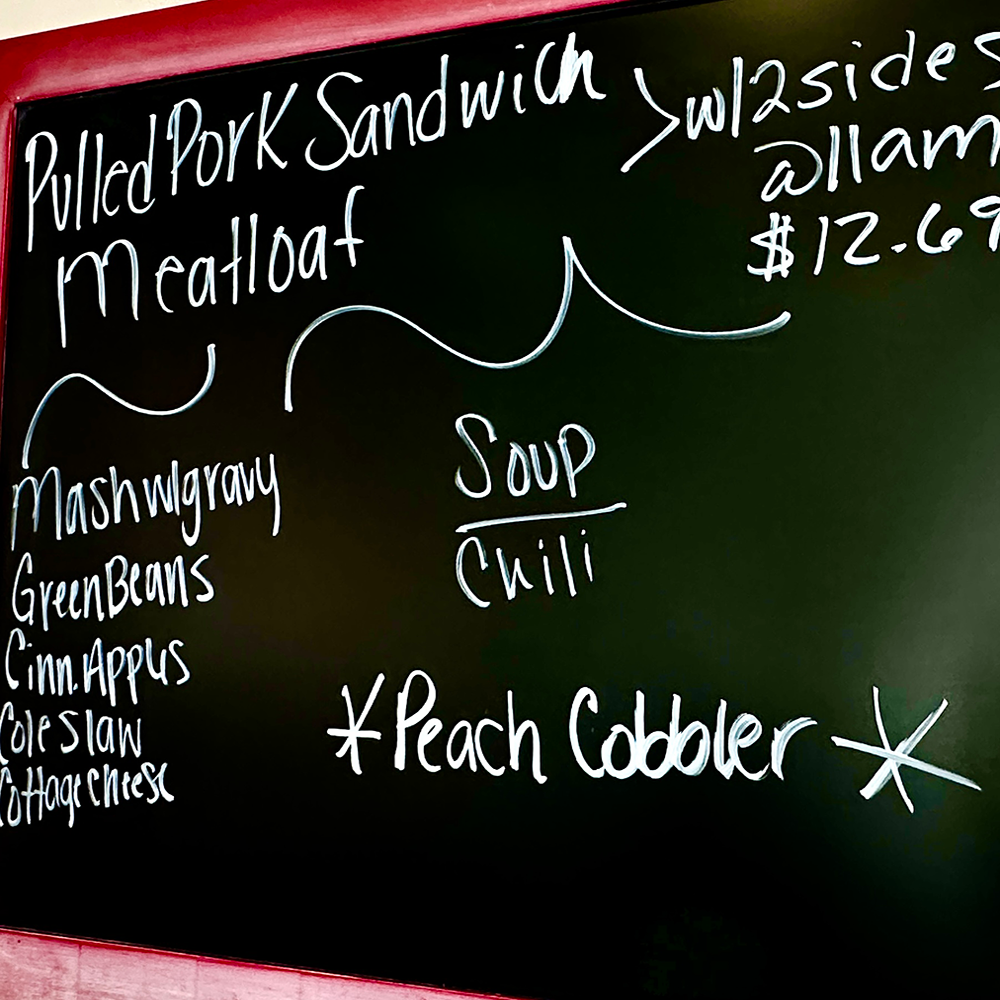 Pulled Pork Sandwich
Meatloaf
> w/2sides
@11am
$12.69
Mash w/gravy
Green Beans
Cinn. Apples
Cole Slaw
Cottage Cheese
Soup
Chili
*Peach Cobbler*